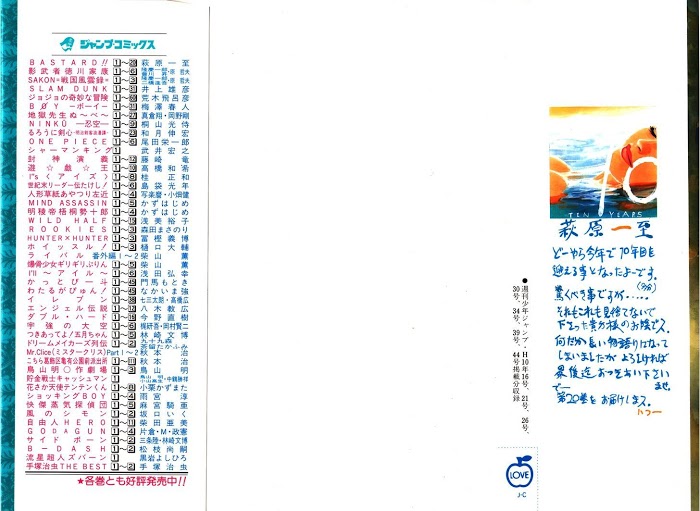 ジャンプ・コミックス
BASTARD!! 1~20 萩原一至
影武者徳川家康 1~6 隆慶一郎・原哲夫
SAKON=戦国風雲録= 1~3 原哲夫
SLAM DUNK 1~31 井上雄彦
ジョジョの奇妙な冒険 1~60 荒木飛呂彦
BØY ーボーイー 1~31 梅澤春人
地獄先生ぬ~べ~ 1~27 真倉翔・岡野剛
NINKŪ ー忍空ー 1~9 桐山光侍
るろうに剣心・明治剣客浪漫譚・ 1~23 和月伸宏
ONE PIECE 1~6 尾田栄一郎
シャーマンキング 1 武井宏之
封神演義 1~12 藤崎竜
遊☆戯☆王 1~10 高橋和希
I"s〈アイズ〉 1~8 桂正和
世紀末リーダー伝たけし! 1~6 島袋光年
人形草紙あやつり左近 1~4 写楽麿・小畑健
MIND ASSASSIN 1~5 かずはじめ
明稜帝梧桐勢十郎 1~4 かずはじめ
WILD HALF 1~15 浅美裕子
ROOKIES 1~3 森田まさのり
HUNTER×HUNTER 1~3 冨樫義博
ホイッスル! 1~3 樋口大輔
ライバル 番外編1~2 柴山薫
爆骨少女ギリギリぷりん 1~5 柴山薫
I'll ~アイル~ 1~6 浅田弘幸
かっとび一斗 門馬もとき
わたるがぴゅん! なかいま強
イレブン 七三太朗・高橋広
エンジェル伝説 八木教広
ダブル・ハード 今野直樹
宇強の大空 1~6 梶研吾・岡村賢二
つきあってよ!五月ちゃん 1~5 林崎文博
ドリームメイカーズ列伝
Mr.Clice(ミスタークリス) Part1~2 秋本治
こちら葛飾区亀有公園前派出所 秋本治
鳥山明○作劇場 1~3 鳥山明
貯金戦士キャッシュマン 1 中鶴勝祥
花さか天使テンテンくん 1~8 小栗かずまた
ショッキングBOY 1~4 雨宮淳
快傑蒸気探偵団 1~5 麻宮騎亜
風のシモン 1~2 坂口いく
自由人HERO 1~11 柴田亜美
GODAGUN 1~4 片倉・M・政憲
サイドボーン 1~2 三条陸・林崎文博
B-DASH 1~2 松枝尚嗣
流星超人ズバーン 1 黒岩よしひろ
手塚治虫THE BEST 1~2 手塚治虫
★各巻とも好評発売中!!
●週刊少年ジャンプ・H10年16号、21号、26号、
30号、34号、39号、44号掲載分収録
LOVE
J-C
10
TEN YEARS
萩原一至
どーやら今年で10年目を
迎える事となったよーです。
驚くべき事ですが……。(汗)
それもこれも見捨てないで
下さった貴方様のお陰でス。
何だか長い物語りはなって
しまいましたがよろしければ
最後迄おつきあい下さい
ませ。
でー
第20巻をお届けしまス。
ハゴー